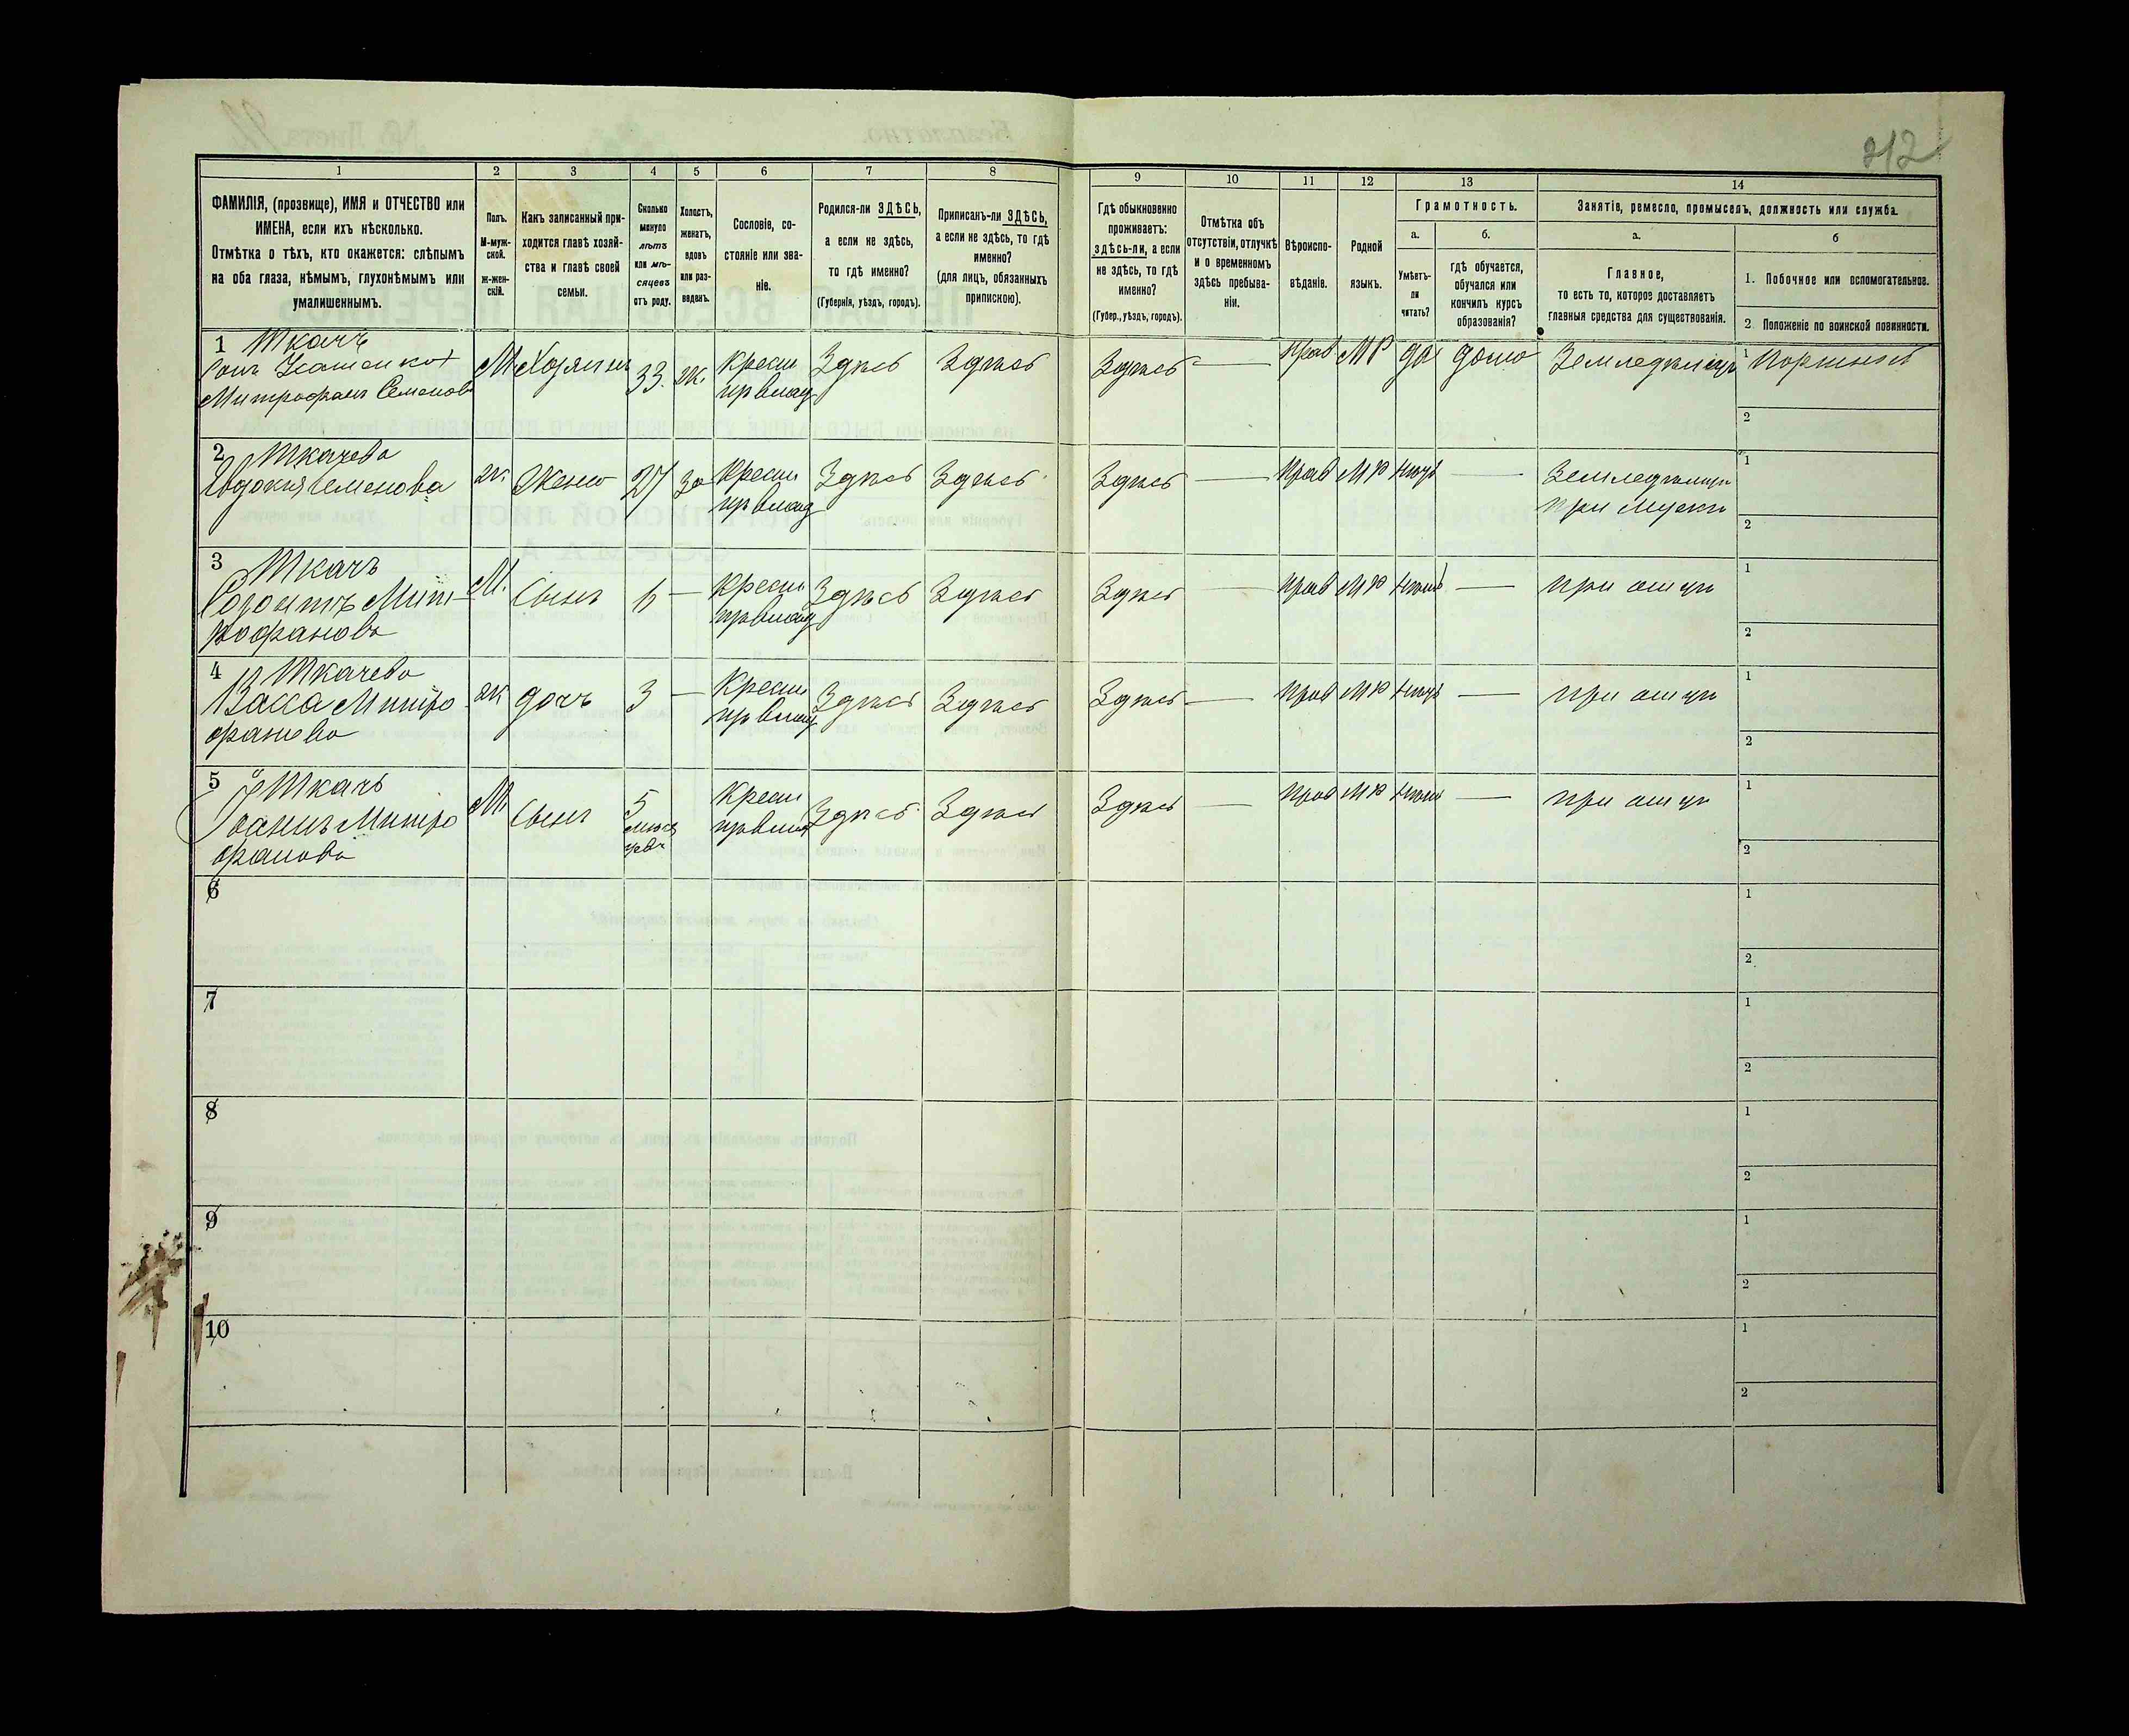 212
1 2 3 4 5 6 7 8 9 10 11 12 13 14
ФАМИЛІЯ, (прозвище), ИМЯ и ОТЧЕСТВО или
ИМЕНА, если ихъ нѣсколько.
Отмѣтка о тѣхъ, кто окажется: слѣпымъ
на оба глаза, нѣмымъ, глухонѣмымъ или
умалишеннымъ.
Полъ.
М-муж-
ской.
Ж-жен-
скій.
Какъ записанный при-
ходится главѣ хозяй-
ства и главѣ своей
семьи.
Сколько
минуло
лѣтъ
или мѣ-
сяцевъ
отъ роду.
Холостъ,
женатъ,
вдовъ
или раз-
веденъ.
Сословіе, со-
стояніе или зва-
ніе.
Родился-ли ЗДѢСЬ,
а если не здѣсь,
то гдѣ именно?
(Губернія, уѣздъ, городъ).
Приписанъ-ли ЗДѢСЬ,
а если не здѣсь, то гдѣ
именно?
(для лицъ, обязанныхъ
припискою).
Гдѣ обыкновенно
проживаетъ:
здѣсь-ли, а если
не здѣсь, то гдѣ
именно?
(Губер., уѣздъ, городъ).
Отмѣтка объ
отсутствіи, отлучкѣ
и о временномъ
здѣсь пребыва-
ніи.
Вѣроиспо-
вѣданіе.
Родной
языкъ.
Грамотность.
а.
Умѣетъ-
ли
читать?
б.
гдѣ обучается,
обучался или
кончилъ курсъ
образованія?
Занятіе, ремесло, промыселъ, должность или служба.
а.
Главное,
то есть то, которое доставляетъ
главныя средства для существованія.
б
1. Побочное или вспомогательное.
2 Положеніе по воинской повинности.
1 Ткачъ
Митрофанъ Семенов
М Хозяинъ 33 ж. Крестн Здѣсь Здѣсь Здѣсь — Прав МР да дома Земледѣлецъ 1
2
2 Ткачева
Евдокия Семенова
ж. Жена 27 За Крестн Здѣсь Здѣсь Здѣсь — Прав МР нѣтъ — 1
при мужѣ
2
3 Ткачъ
Мит-
рофановъ
М. Сынъ 6 — Крестн Здѣсь Здѣсь Здѣсь — Прав МР нѣтъ — при отцѣ 1
2
4 Ткачева
Васса Митро
фанова
ж дочь 3 — Крестн Здѣсь Здѣсь Здѣсь — Прав МР нѣтъ — при отцѣ 1
2
5 Ткачъ
Иванъ Митро
фановъ
М. Сынъ 5
мѣся
цевъ
Крестн Здѣсь Здѣсь Здѣсь — Прав МР нѣтъ — при отцѣ 1
2
6 1
2
7 1
2
8 1
2
9 1
2
10 1
2